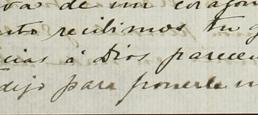 va de un corazon
nto recibimos tu g
cias á Dios parece
dijo para ponerle u